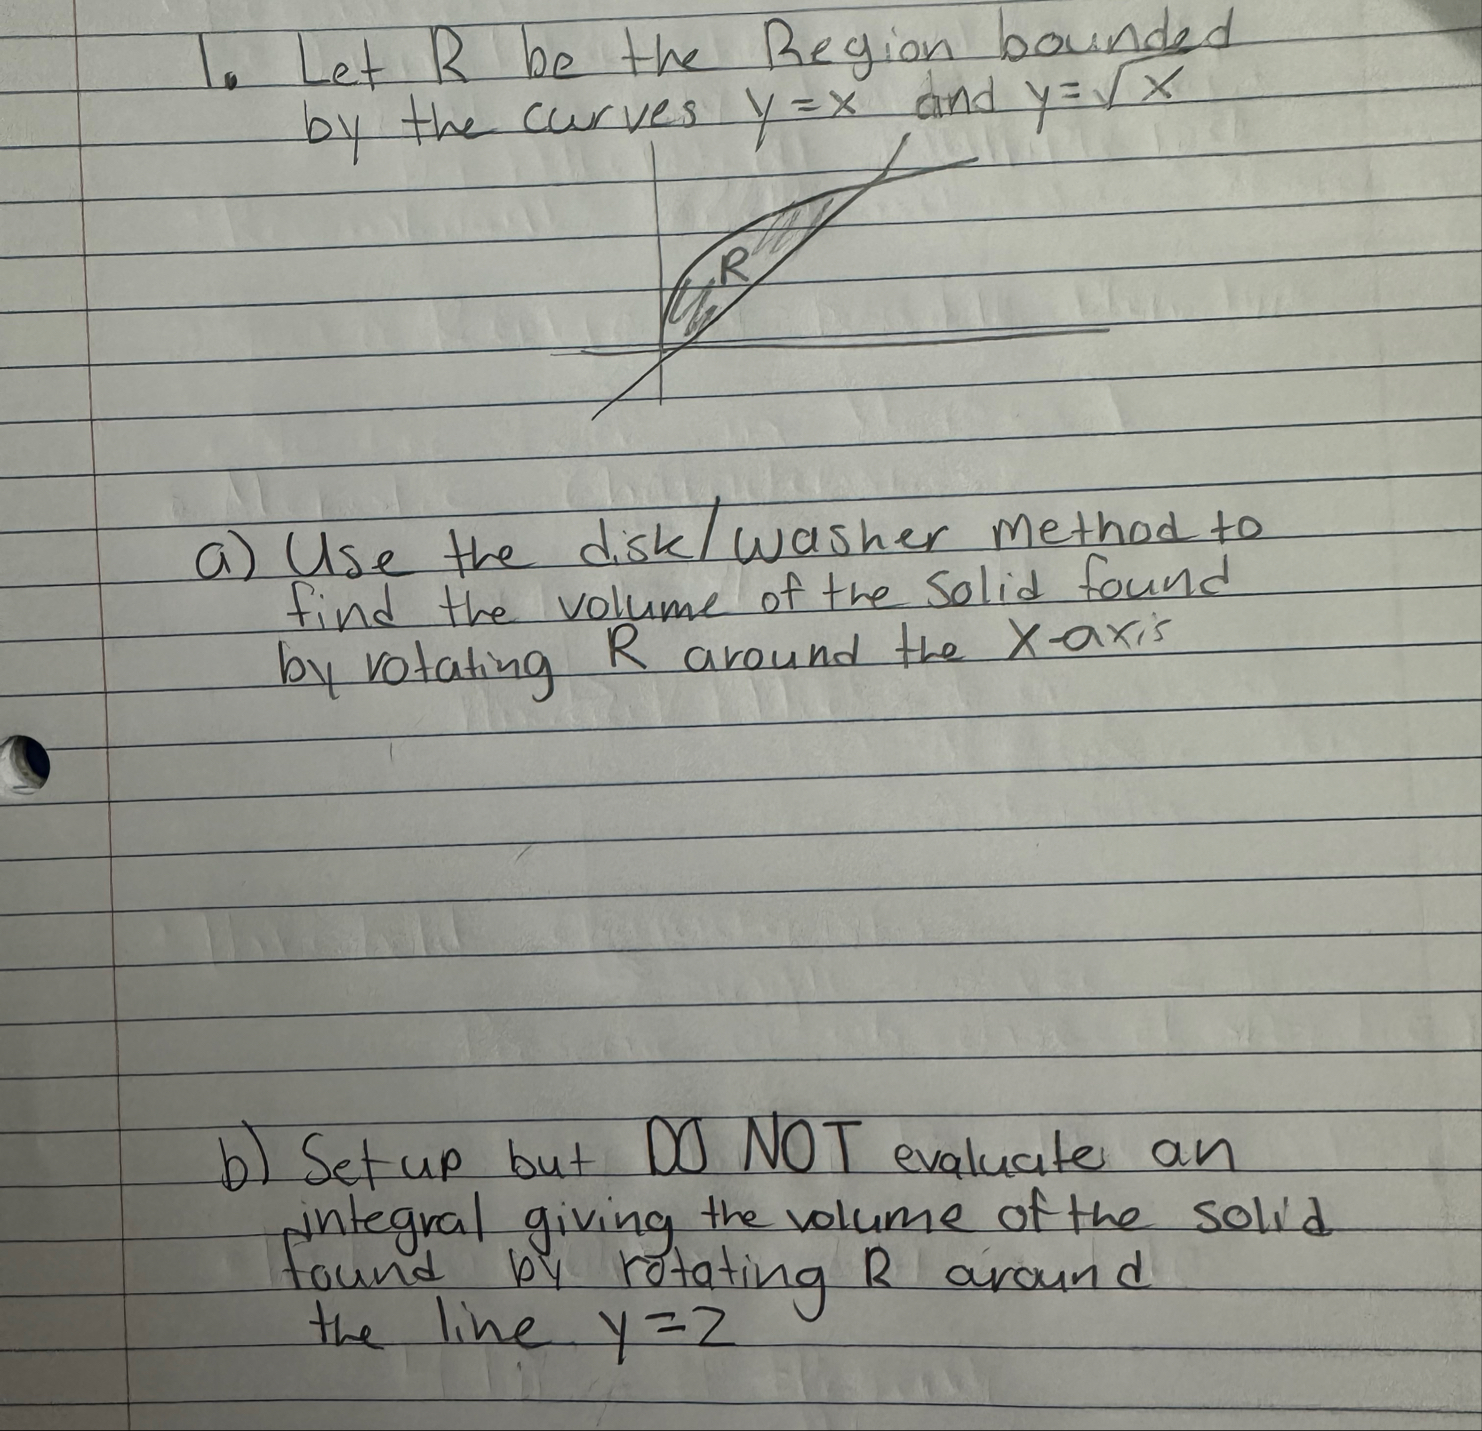 1. Let R be the Region bounded
by the curves y=x and y=√x
R
a) Use the disk/washer method to
find the volume of the solid found
by rotating R around the x-axis
b) Set up but DO NOT evaluate an
integral giving the volume of the solid
found by rotating R around
the line y=2